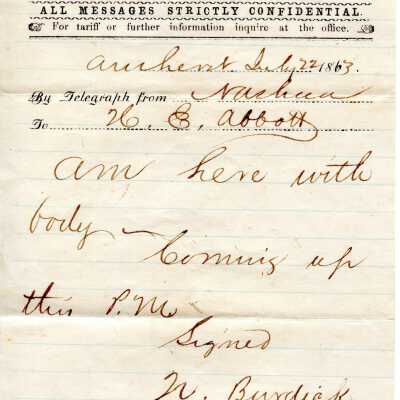 ALL MESSAGES STRICTLY CONFIDENTIAL.
For tariff or further information inquire at the office.
Amherst July 22 1863.
By Telegraph from Nashua
To H. E. Abbott
Am here with
body – Coming up
this P.M.
Signed
N. Burdick